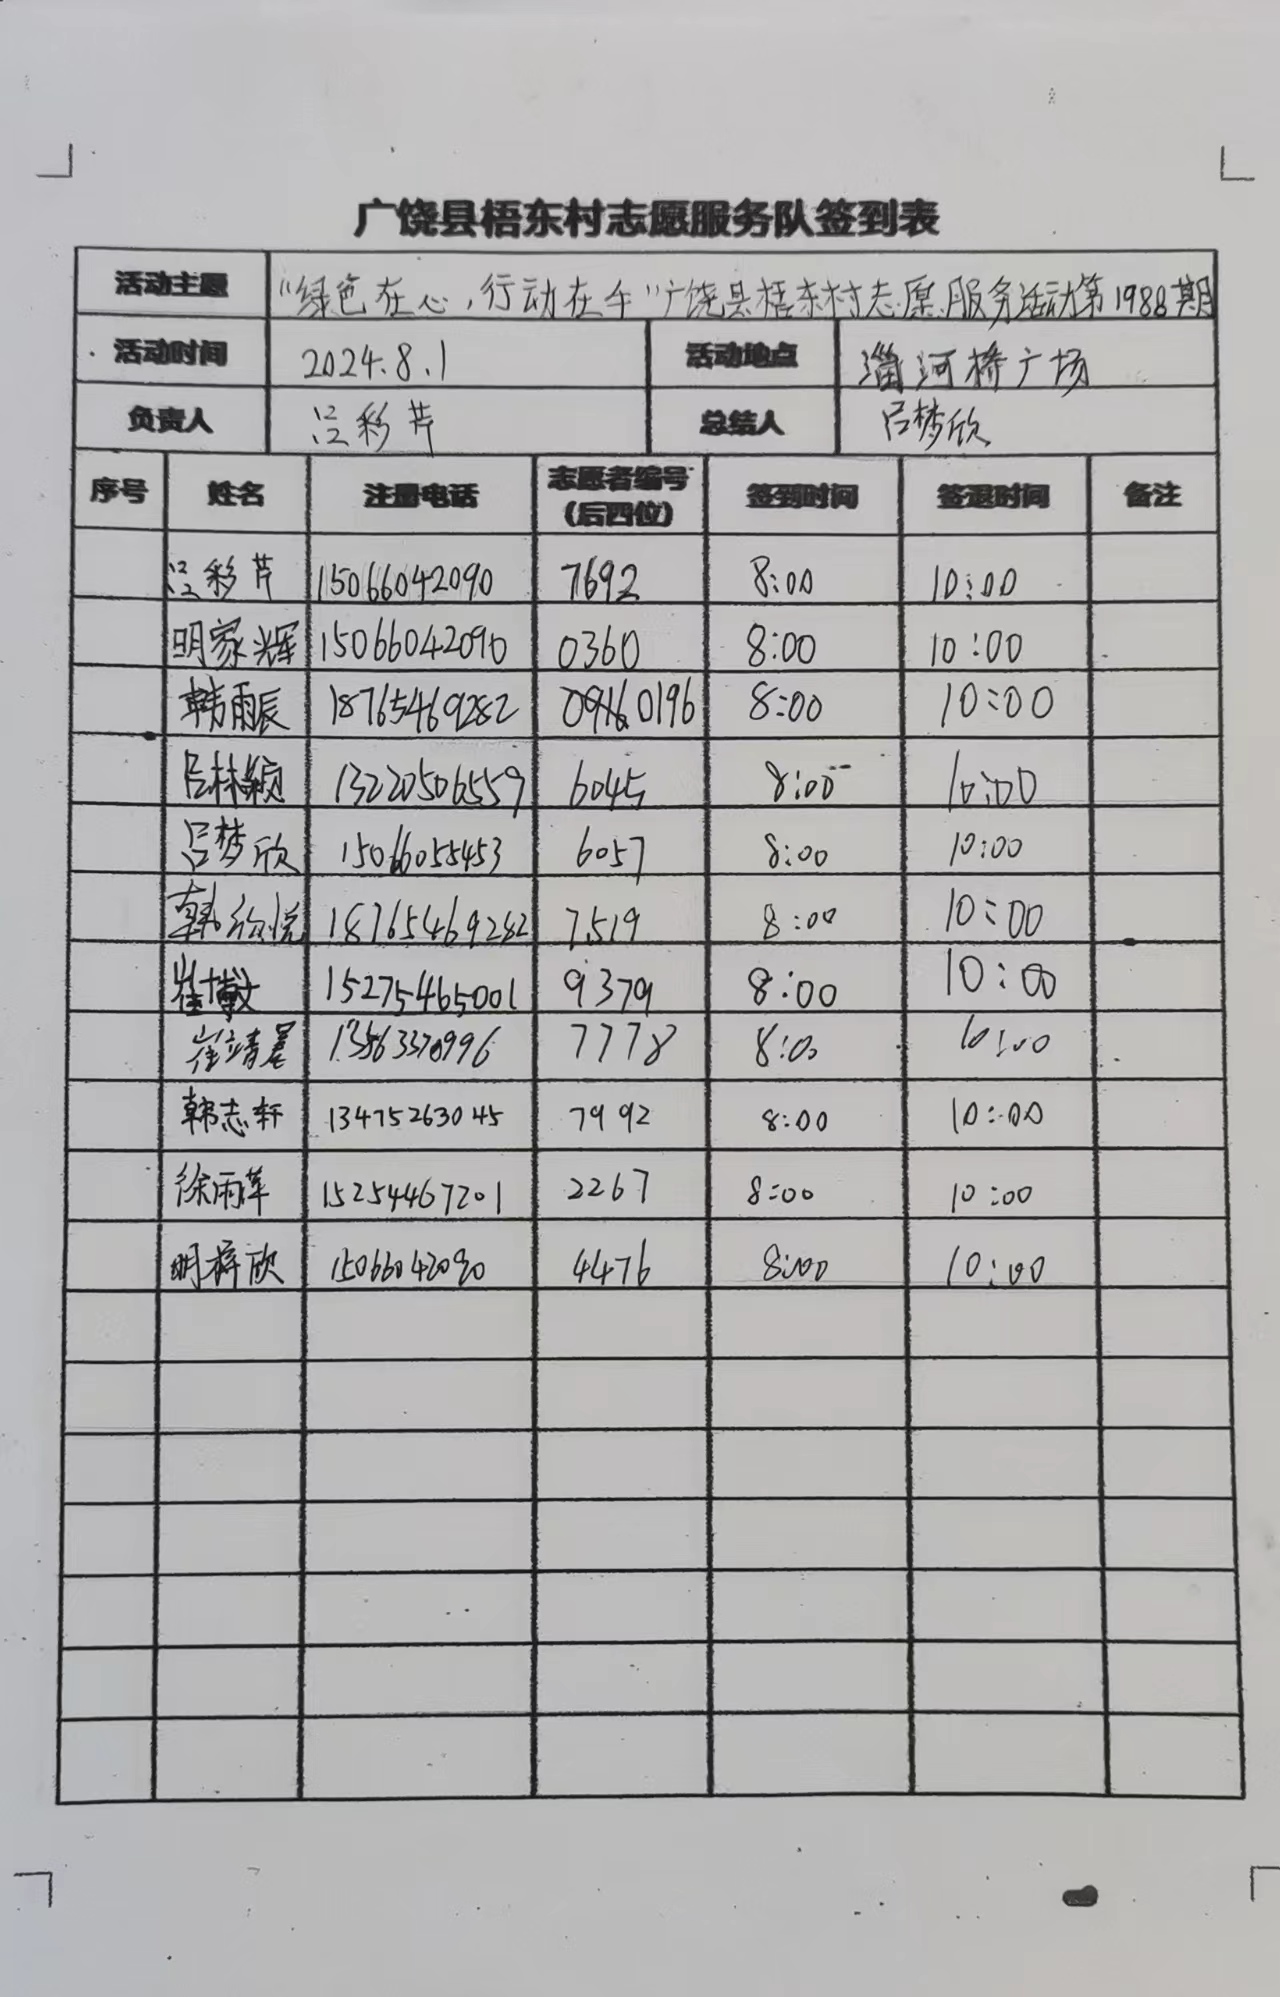 广饶县梧东村志愿服务队签到表
活动主题 "绿色在心,行动在手"广饶县梧东村志愿服务活动第1988期
活动时间 2024.8.1 活动地点 淄河桥广场
负责人 吕彩芹 总结人 吕梦欣
序号 姓名 注册电话 志愿者编号(后四位) 签到时间 签退时间 备注
吕彩芹 15066042090 7692 8:00 10:00
明家辉 15066042090 0360 8:00 10:00
韩雨辰 18765469282 0196 8:00 10:00
吕林颖 13220506559 6045 8:00 10:00
吕梦欣 15066055453 6057 8:00 10:00
韩欣悦 18765469282 7519 8:00 10:00
崔博文 15275465001 9379 8:00 10:00
崔靖晨 13563370996 7778 8:00 10:00
韩志轩 13475263045 7992 8:00 10:00
徐雨萍 15254467201 2267 8:00 10:00
明梓欣 15066042090 4476 8:00 10:00